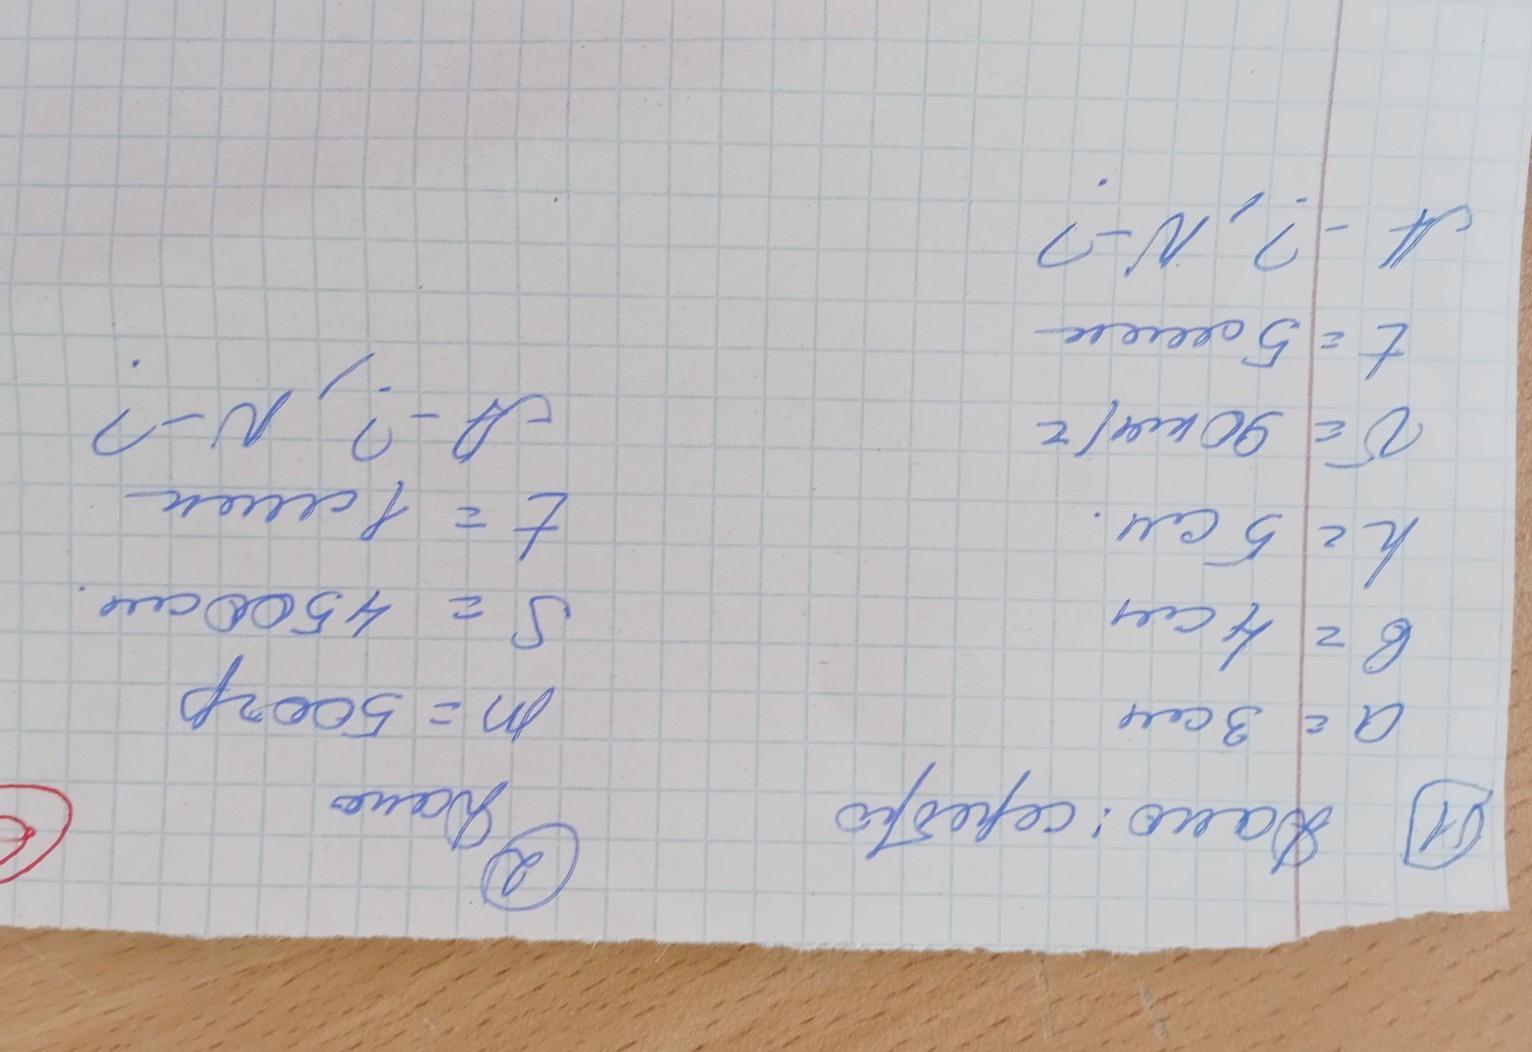 1 Дано: серебро
a = 3 см
в = 4 см
h = 5 см.
v = 90 км/г
t = 5 мин
A - ?, N - ?
2 Дано
m = 500 гр
S = 4500 см.
t = 1 мин
A - ?, N - ?